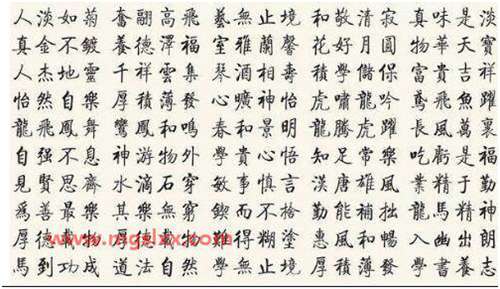 人淡如菊奮翮高飛藝無止境和敬清寂真味是淡
真金不鍍養德澤福室雅蘭馨花好月圓物華天寶
人杰地靈千祥雲集琴酒相壽積學儲保富貴吉祥
怡然自樂厚積薄發心曠神怡虎嘯龍吟鳶飛魚躍
龍飛鳳舞鸞鳳和鳴春和景明龍騰虎躍長風萬裏
自强不息神游物外學貴心悟知足常樂吃虧是福
見賢思齊水滴石穿敏事慎言漢唐雄風業精于勤
爲善最樂其樂無窮鍥而不捨勤能補拙龍馬精神
厚德載物厚德載物難得糊塗惠風和暢入幽出朗
馬到功成道法自然學無止境厚積薄發學書養志